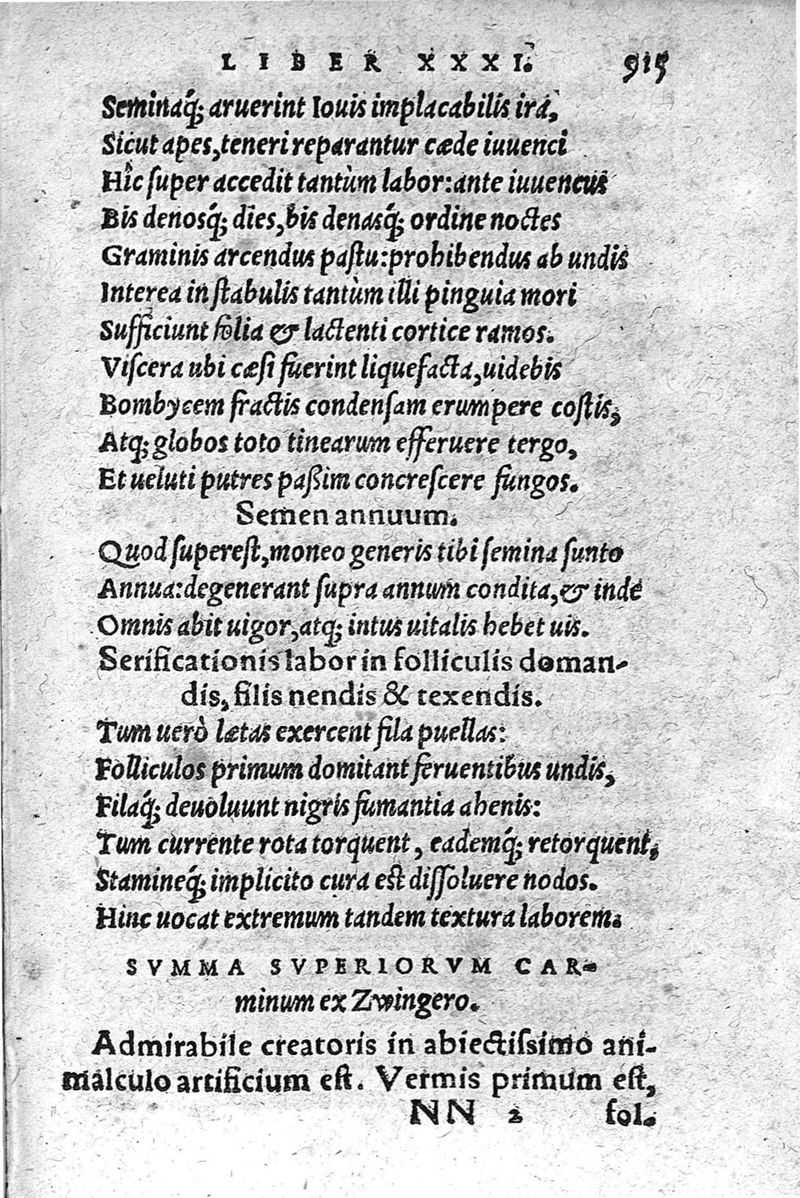 LIBER XXXI. 915
Seminaq́; aruerint Iouis implacabilis ira,
Sicut apes, teneri reparantur cæde iuuenci
Hic super accedit tantùm labor: ante iuuencus
Bis denosq́; dies, bis denasq́; ordine noctes
Graminis arcendus pastu: prohibendus ab undis
Interea in stabulis tantùm illi pinguia mori
Sufficiunt folia & lactenti cortice ramos.
Viscera ubi cæsi fuerint liquefacta, uidebis
Bombycem fractis condensam erumpere costis,
Atq; globos toto tinearum efferuere tergo,
Et ueluti putres paßim concrescere fungos.
Semen annuum.
Quod superest, moneo generis tibi semina sunto
Annua: degenerant supra annum condita, & inde
Omnis abit uigor, atq; intus uitalis hebet uis.
Serificationis labor in folliculis doman-
dis, filis nendis & texendis.
Tum uerò lætas exercent fila puellas:
Folliculos primum domitant feruentibus undis,
Filaq́; deuoluunt nigris fumantia ahenis:
Tum currente rota torquent, eademq́; retorquent,
Stamineq́; implicito cura est dissoluere nodos.
Hinc uocat extremum tandem textura laborem.
SVMMA SVPERIORVM CAR-
minum ex Zwingero.
Admirabile creatoris in abiectissimo ani-
malculo artificium est. Vermis primum est,
NN 2 fol.